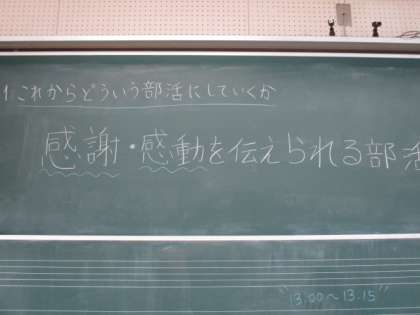 1.これからどういう部活にしていくか
感謝・感動を伝えられる部活
"13:00～13:15"